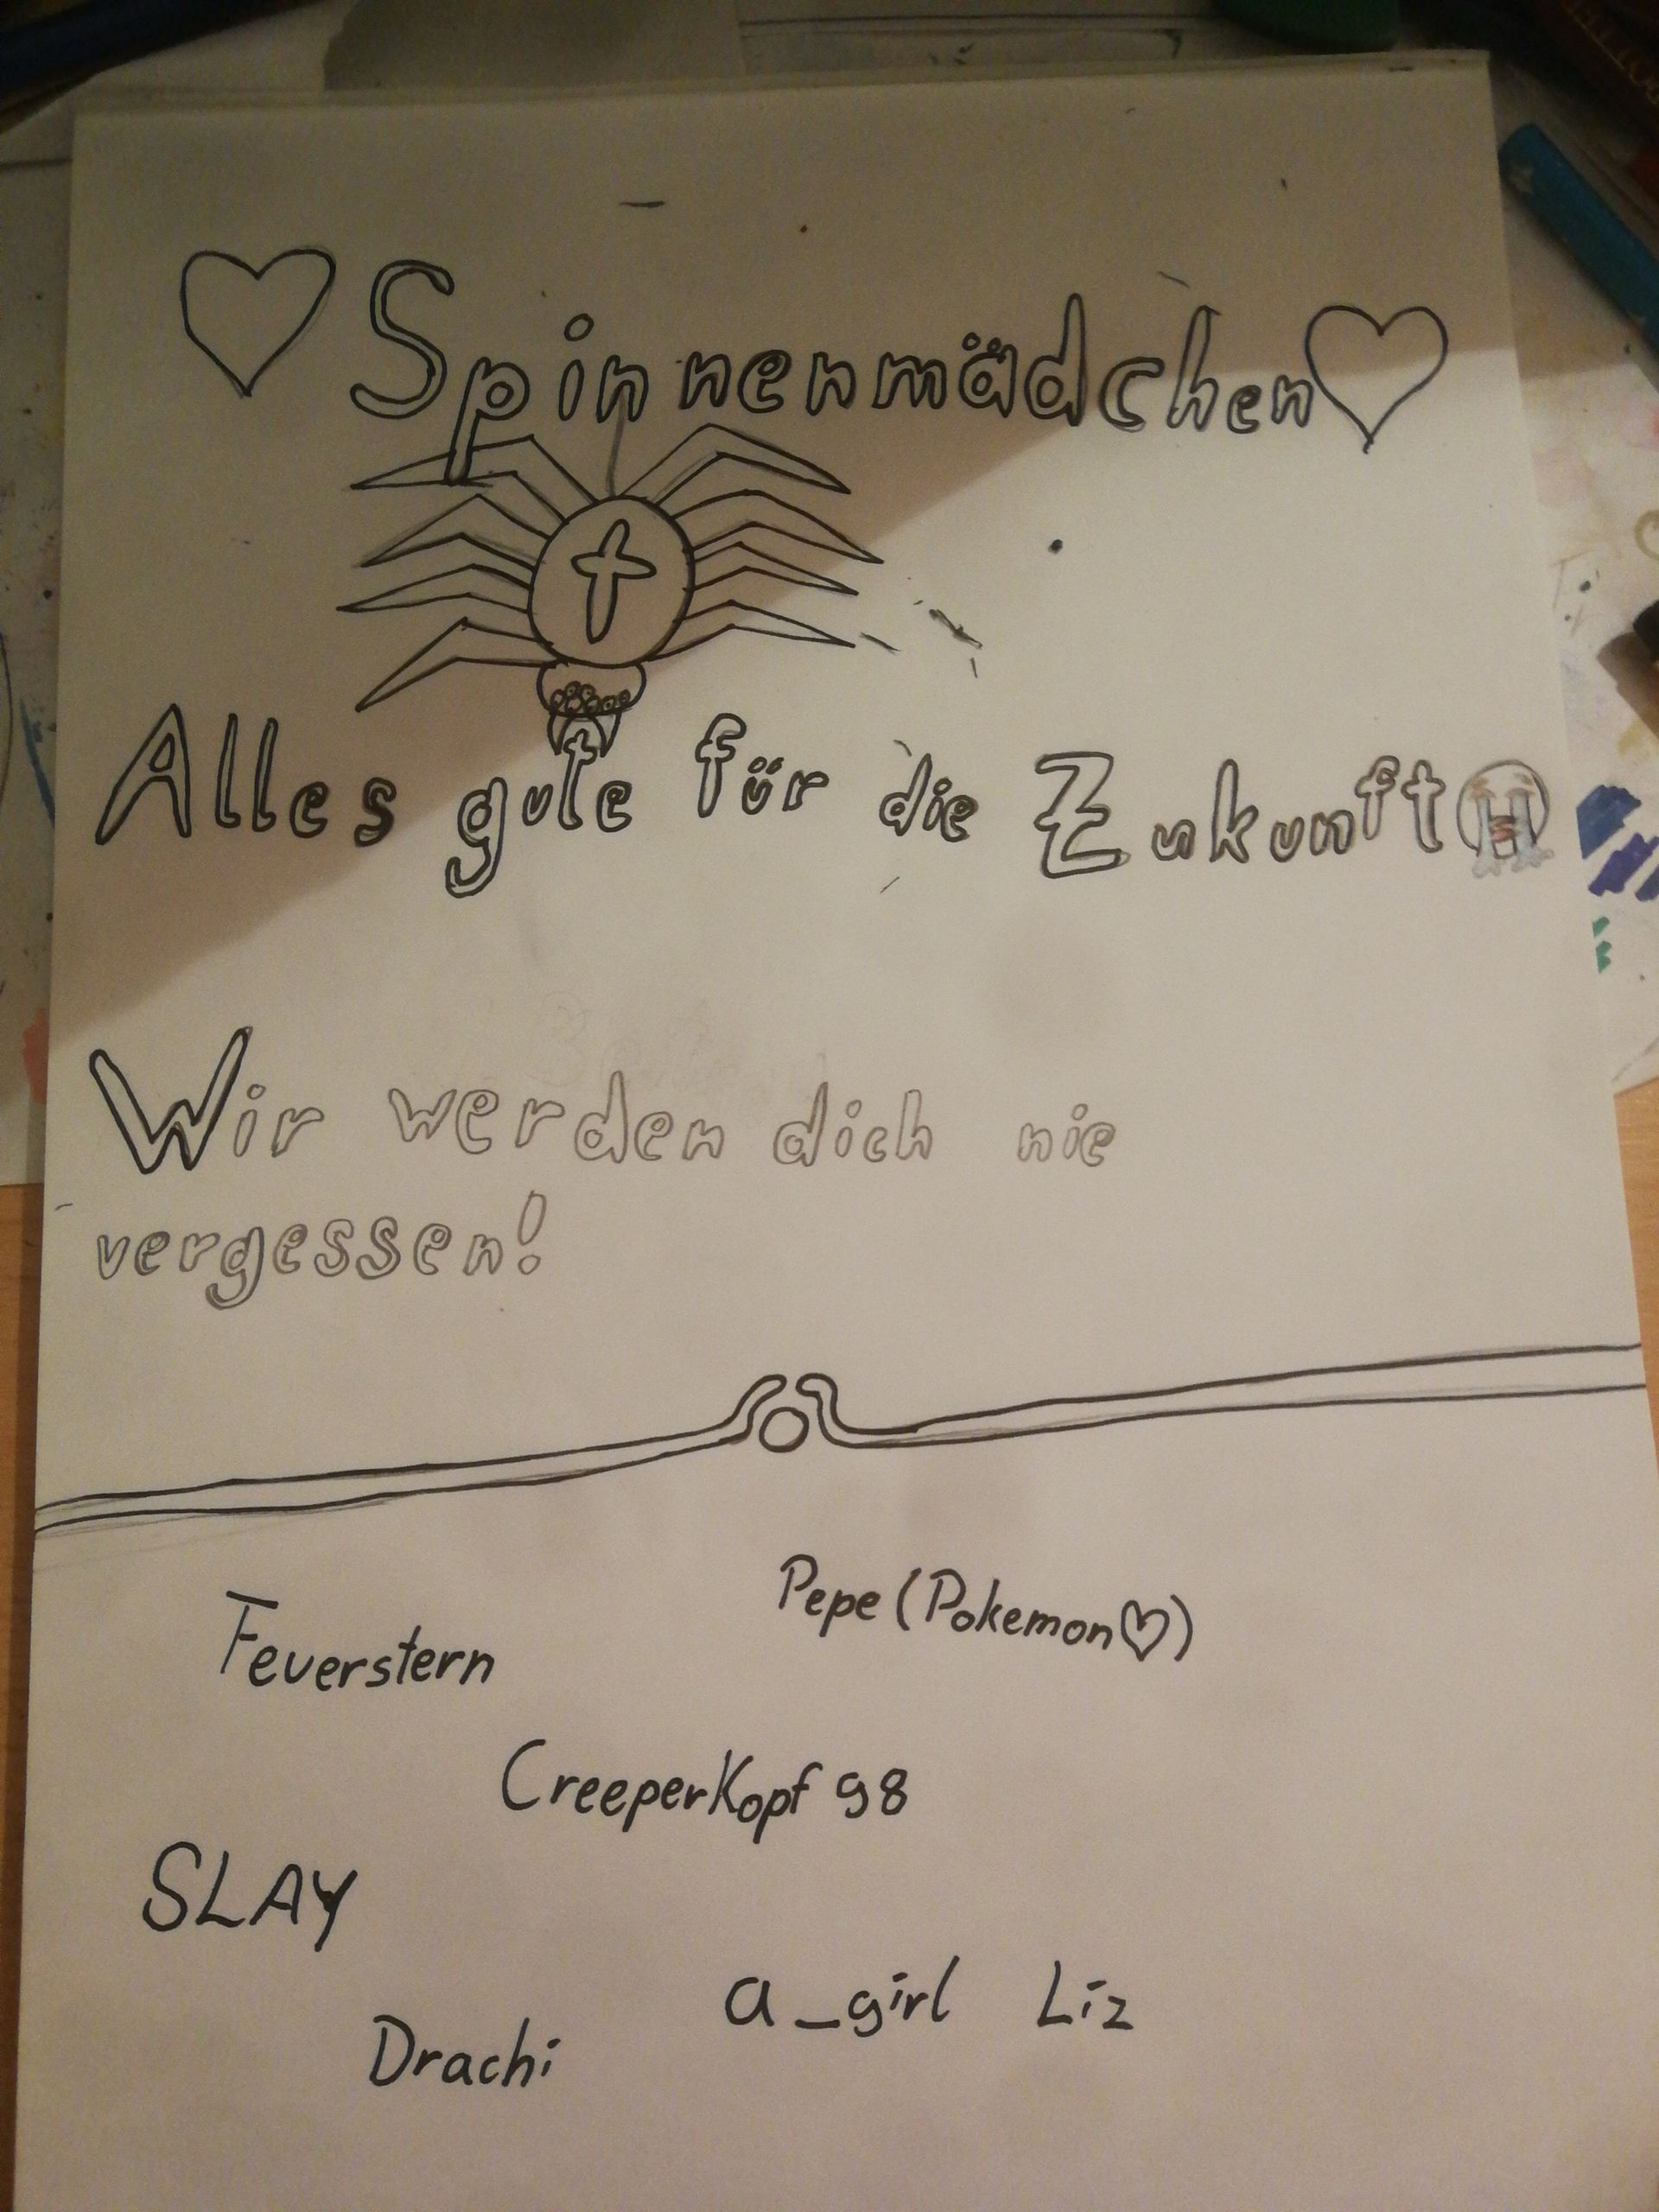 ♡Spinnenmädchen♡
Alles gute für die Zukunft😭
Wir werden dich nie
vergessen!
Pepe (Pokemon♡)
Feuerstern
CreeperKopf 98
SLAY
a_girl Liz
Drachi